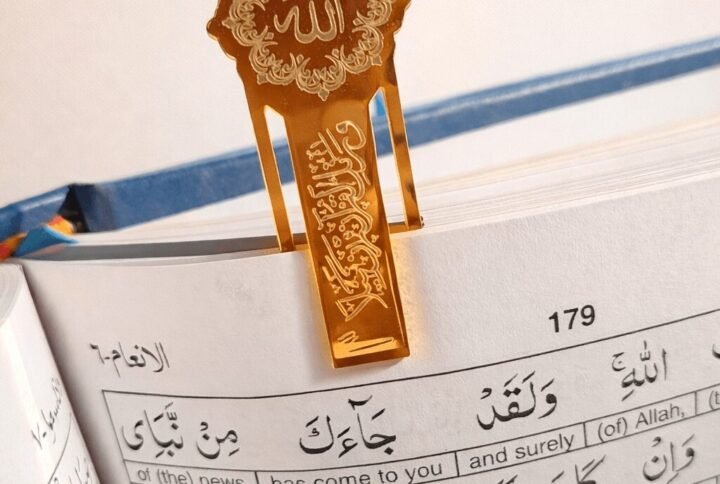 الله
ورتل القرآن ترتيلا
179
الانعام-٦
اللهِ ۚ وَلَقَدْ جَآءَكَ مِنْ نَّبَاِى
of (the) news has come to you and surely (of) Allah,
وَاِنْ كَانَ